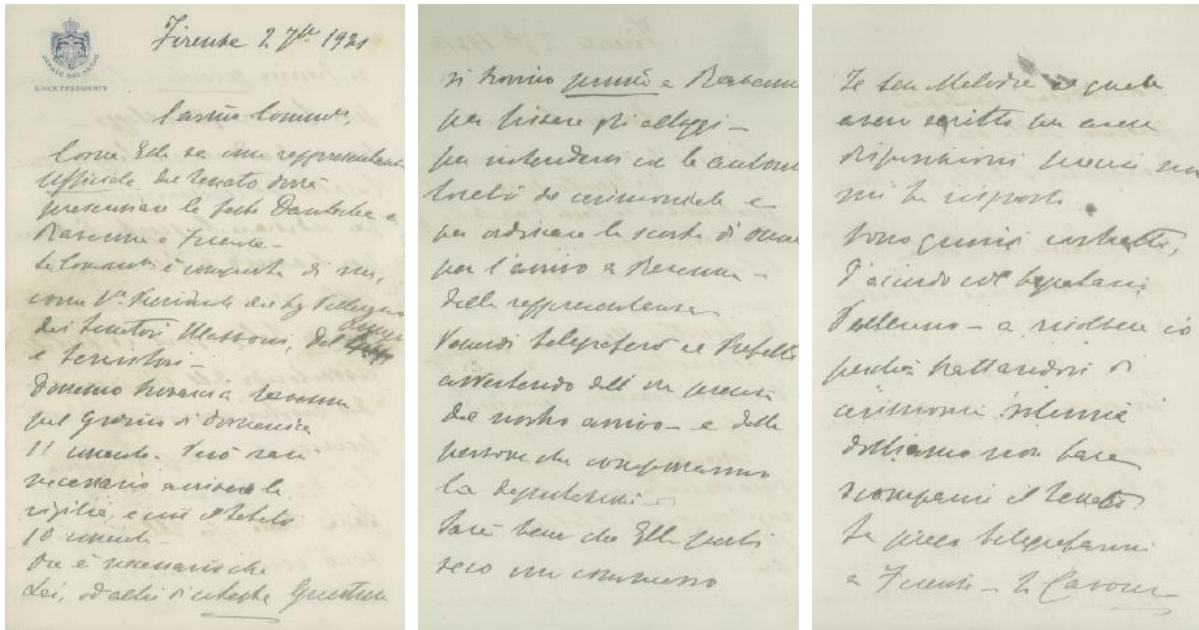 Firenze 2 7bre 1921
SENATO DEL REGNO
IL VICE PRESIDENTE
Come Ella sa una rappresentanza
Ufficiale del Senato dovrà
presenziare le feste Dantesche a
Ravenna e Firenze -
è composta di me,
come Vice Presidente del
dei Senatori Del Lungo
e
Dovremo trovarci a Ravenna
pel giorno di Domenica
11 corrente. Però sarà
necessario arrivare la
vigilia, e cioè il Sabato
10 corrente -
Ora è necessario che
Lei, od altri di cotesta Questura
si trovino prima a Ravenna
per fissare gli alloggi -
per intendersi con le autorità
locali del cerimoniale e
per ordinare la scorta di onore
per l'arrivo a Ravenna -
della rappresentanza
Venerdì telegraferò al Prefetto
avvertendo dell'ora precisa
del nostro arrivo - e delle
persone che compongono
la deputazione
Sarà bene che Ella porti
seco un commesso
al quale
avevo scritto per avere
disposizioni precise non
mi ha risposto
Sono quindi costretto,
d'accordo col Segretario
Pellerano - a risolvere io
perché trattandosi di
cerimonia solenne
dobbiamo non fare
scomparire il Senato
La prego telegrafarmi
a Firenze - Cavour